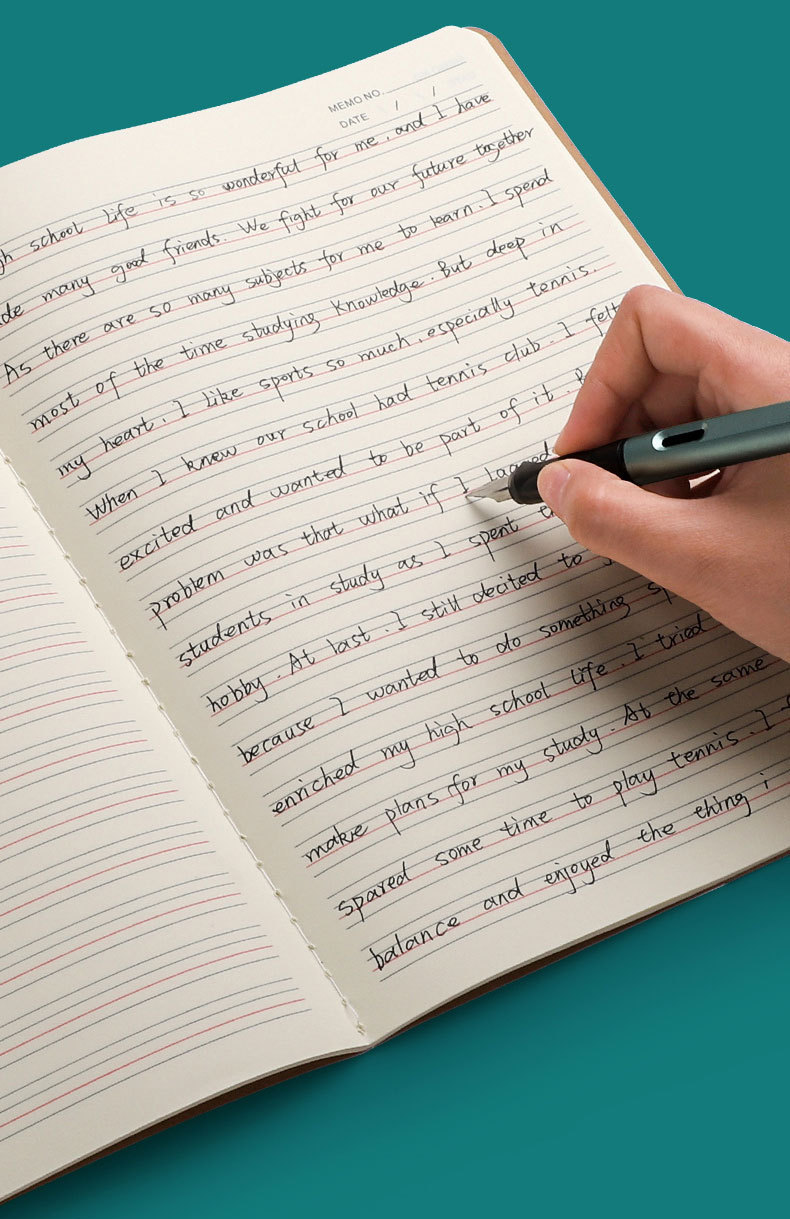 MEMO NO.
DATE / /
gh school life is so wonderful for me, and I have
de many good friends. We fight for our future together
As there are so many subjects for me to learn. I spend
most of the time studying knowledge. But deep in
my heart, I like sports so much, especially tennis.
When I knew our school had tennis club. I felt
excited and wanted to be part of it.
problem was that what if I lagged
students in study as I spent
hobby. At last, I still decited to
because I wanted to do something
enriched my high school life. I tried
make plans for my study. At the same
spared some time to play tennis. I
balance and enjoyed the thing i